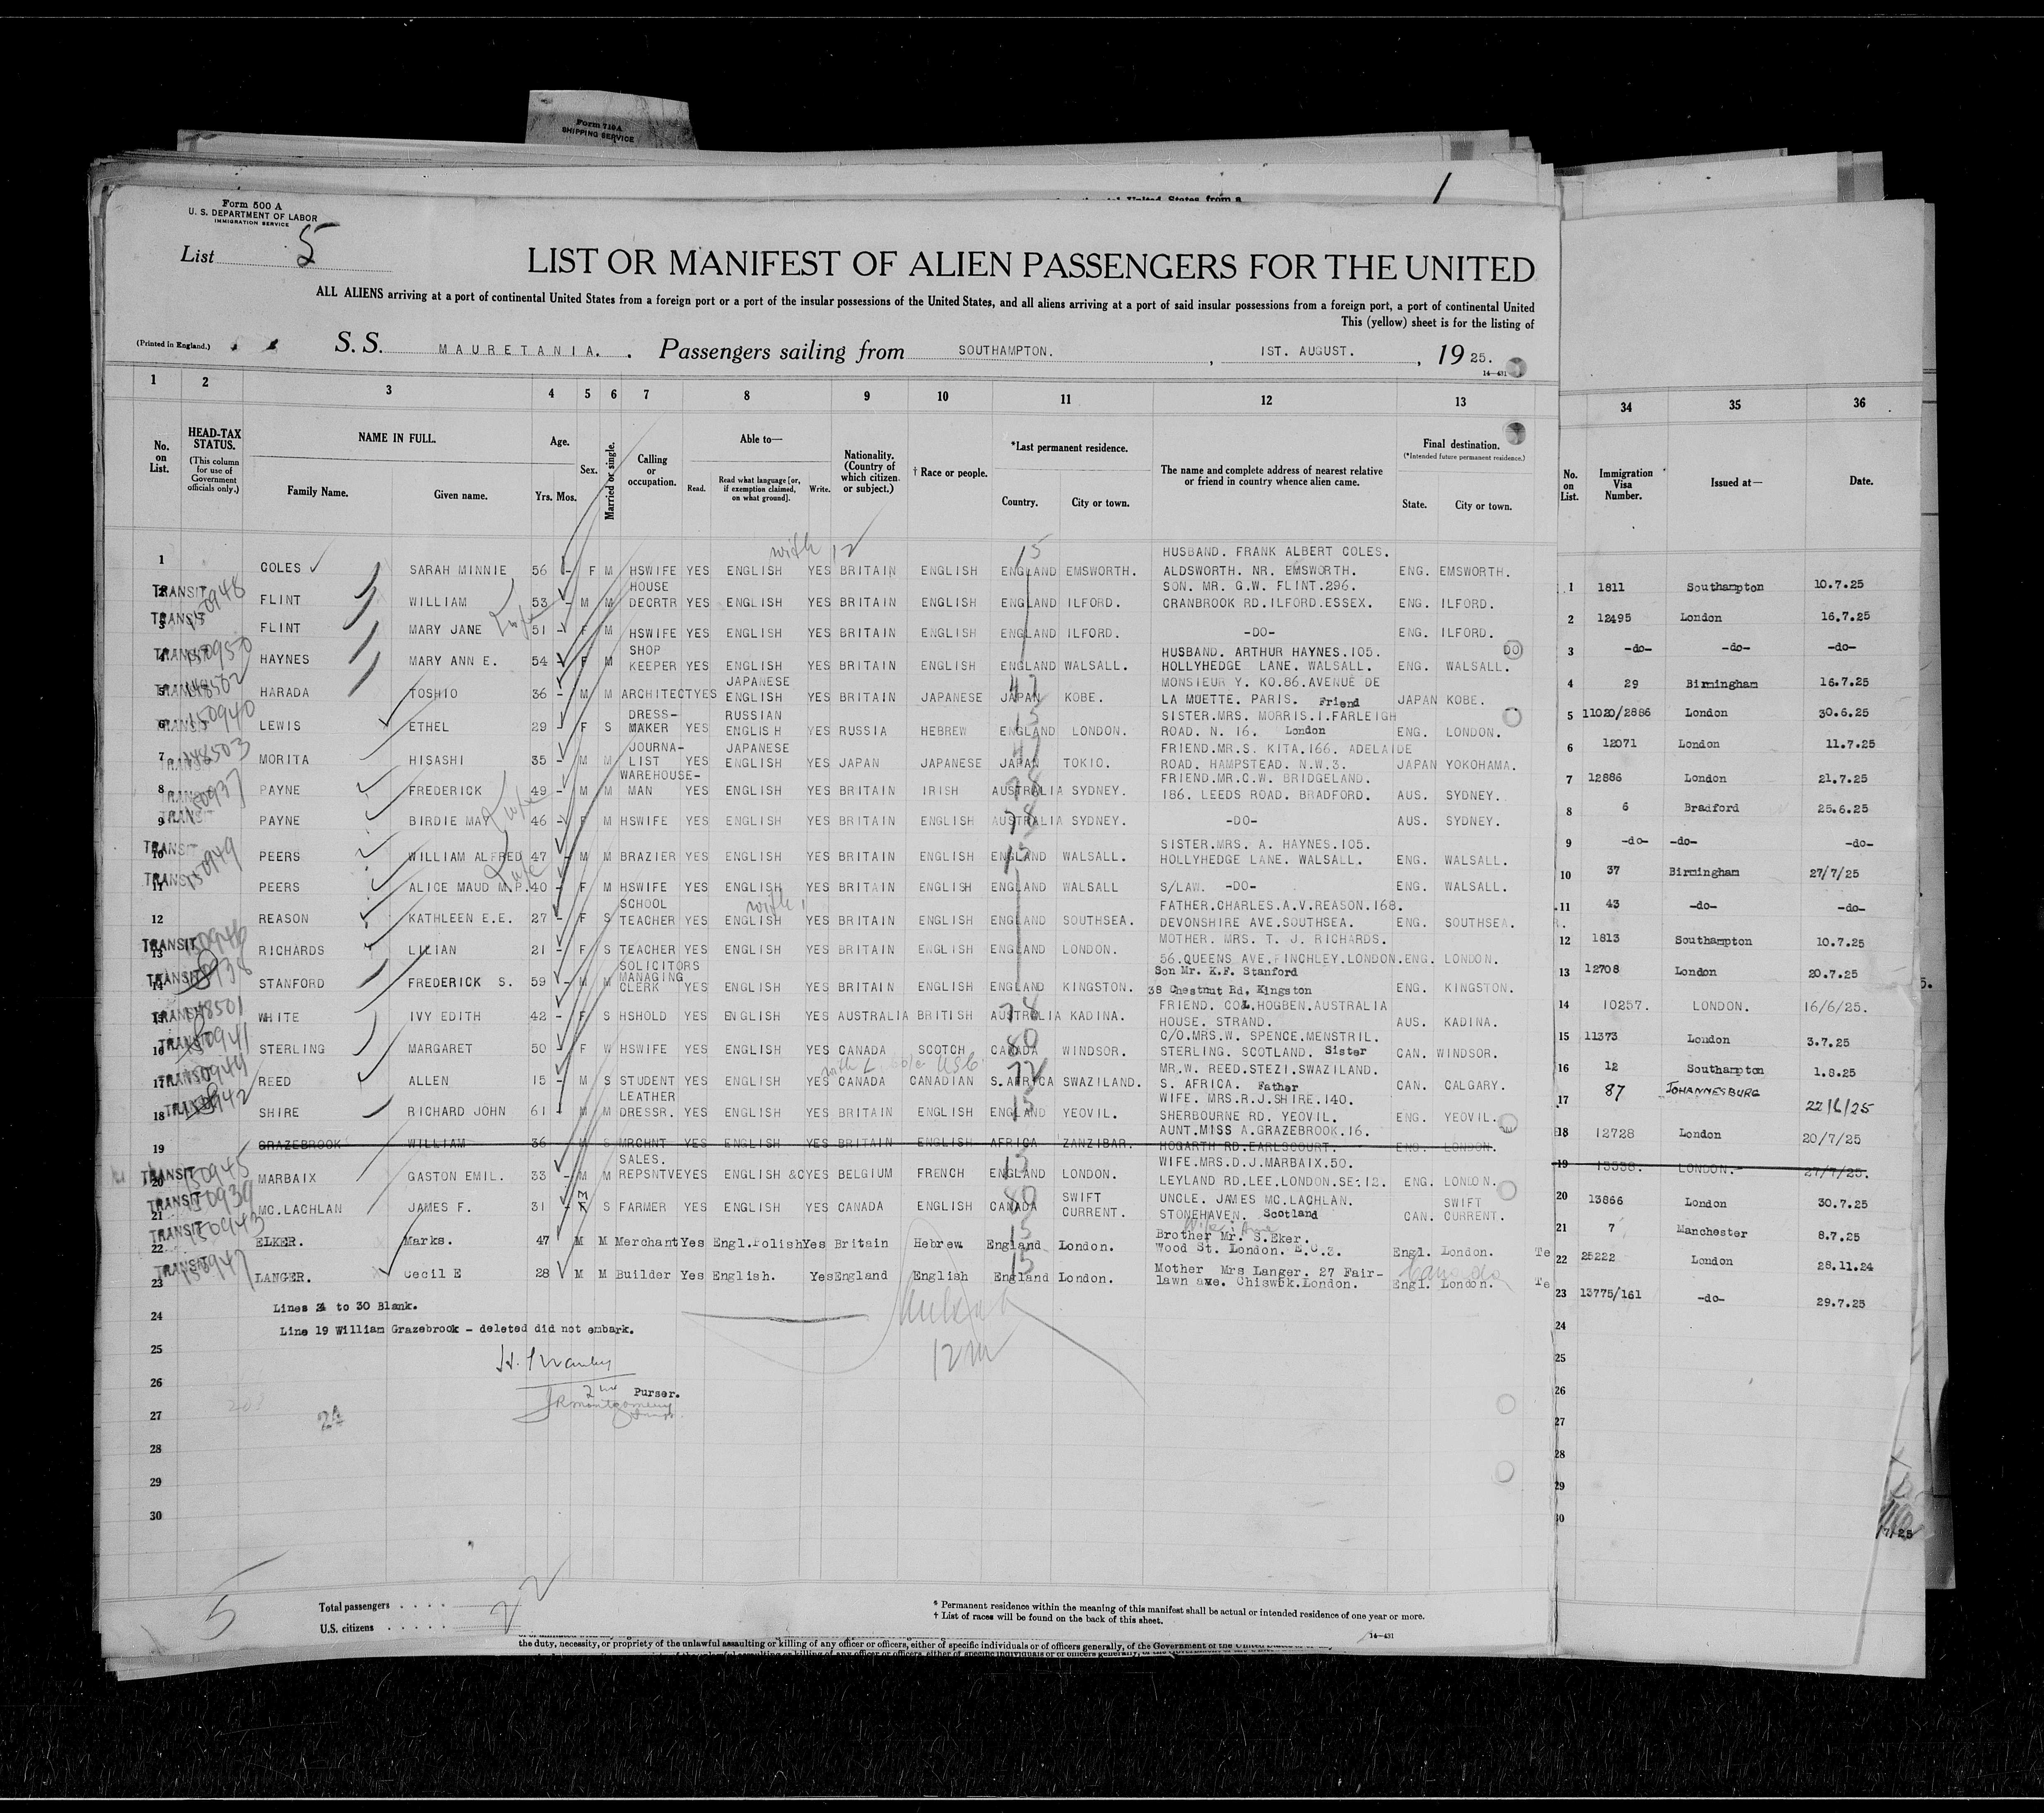 Form 710A
SHIPPING SERVICE
Form 500 A
U. S. DEPARTMENT OF LABOR
IMMIGRATION SERVICE
List 5
LIST OR MANIFEST OF ALIEN PASSENGERS FOR THE UNITED
ALL ALIENS arriving at a port of continental United States from a foreign port or a port of the insular possessions of the United States, and all aliens arriving at a port of said insular possessions from a foreign port, a port of continental United
This (yellow) sheet is for the listing of
(Printed in England.) S. S. MAURETANIA. Passengers sailing from SOUTHAMPTON. , 1ST. AUGUST. , 19 25.
14—431
1 2 3 4 5 6 7 8 9 10 11 12 13 34 35 36
No. on List.
HEAD-TAX STATUS.
(This column for use of Government officials only.)
NAME IN FULL.
Family Name. Given name.
Age.
Yrs. Mos.
Sex.
Married or single.
Calling or occupation.
Able to—
Read. Read what language [or, if exemption claimed, on what ground]. Write.
Nationality. (Country of which citizen or subject.)
† Race or people.
*Last permanent residence.
Country. City or town.
The name and complete address of nearest relative or friend in country whence alien came.
Final destination.
(*Intended future permanent residence.)
State. City or town.
No. on List.
Immigration Visa Number.
Issued at—
Date.
with 12 15
1 COLES SARAH MINNIE 56 - F M HSWIFE YES ENGLISH YES BRITAIN ENGLISH ENGLAND EMSWORTH. HUSBAND. FRANK ALBERT COLES. ALDSWORTH. NR. EMSWORTH. ENG. EMSWORTH.
TRANSIT 150948
2 FLINT WILLIAM 53 - M M HOUSE DECRTR YES ENGLISH YES BRITAIN ENGLISH ENGLAND ILFORD. SON. MR. G.W. FLINT.296. CRANBROOK RD.ILFORD.ESSEX. ENG. ILFORD.
TRANSIT
3 FLINT MARY JANE 51 - F M HSWIFE YES ENGLISH YES BRITAIN ENGLISH ENGLAND ILFORD. -DO- ENG. ILFORD.
TRANSIT 150950
4 HAYNES MARY ANN E. 54 - F M SHOP KEEPER YES ENGLISH YES BRITAIN ENGLISH ENGLAND WALSALL. HUSBAND. ARTHUR HAYNES.105. HOLLYHEDGE LANE. WALSALL. ENG. WALSALL.
TRANSIT 148502
5 HARADA TOSHIO 36 - M M ARCHITECT YES JAPANESE ENGLISH YES BRITAIN JAPANESE JAPAN KOBE. MONSIEUR Y. KO.86.AVENUE DE LA MUETTE. PARIS. Friend JAPAN KOBE.
TRANSIT 150940
6 LEWIS ETHEL 29 - F S DRESS-MAKER YES RUSSIAN ENGLISH YES RUSSIA HEBREW ENGLAND LONDON. SISTER.MRS. MORRIS.I.FARLEIGH ROAD. N. 16. London ENG. LONDON.
TRANSIT 148503
7 MORITA HISASHI 35 - M M JOURNA-LIST YES JAPANESE ENGLISH YES JAPAN JAPANESE JAPAN TOKIO. FRIEND.MR.S. KITA.166. ADELAIDE ROAD. HAMPSTEAD. N.W.3. JAPAN YOKOHAMA.
TRANSIT 150937
8 PAYNE FREDERICK 49 - M M WAREHOUSE-MAN YES ENGLISH YES BRITAIN IRISH AUSTRALIA SYDNEY. FRIEND.MR.C.W. BRIDGELAND. 186. LEEDS ROAD. BRADFORD. AUS. SYDNEY.
TRANSIT
9 PAYNE BIRDIE MAY 46 - F M HSWIFE YES ENGLISH YES BRITAIN ENGLISH AUSTRALIA SYDNEY. -DO- AUS. SYDNEY.
TRANSIT 150949
10 PEERS WILLIAM ALFRED 47 - M M BRAZIER YES ENGLISH YES BRITAIN ENGLISH ENGLAND WALSALL. SISTER.MRS. A. HAYNES.105. HOLLYHEDGE LANE. WALSALL. ENG. WALSALL.
TRANSIT
11 PEERS ALICE MAUD M.P. 40 - F M HSWIFE YES ENGLISH YES BRITAIN ENGLISH ENGLAND WALSALL S/LAW. -DO- ENG. WALSALL.
12 REASON KATHLEEN E.E. 27 - F S SCHOOL TEACHER YES ENGLISH YES BRITAIN ENGLISH ENGLAND SOUTHSEA. FATHER.CHARLES.A.V.REASON.168. DEVONSHIRE AVE.SOUTHSEA. ENG. SOUTHSEA.
TRANSIT 150946
13 RICHARDS LILIAN 21 - F S TEACHER YES ENGLISH YES BRITAIN ENGLISH ENGLAND LONDON. MOTHER. MRS. T. J. RICHARDS. 56.QUEENS AVE.FINCHLEY.LONDON. ENG. LONDON.
TRANSIT
14 STANFORD FREDERICK S. 59 - M M SOLICITORS MANAGING CLERK YES ENGLISH YES BRITAIN ENGLISH ENGLAND KINGSTON. Son Mr. K.F. Stanford 38 Chestnut Rd, Kingston ENG. KINGSTON.
TRANSIT 148501
15 WHITE IVY EDITH 42 - F S HSHOLD YES ENGLISH YES AUSTRALIA BRITISH AUSTRALIA KADINA. FRIEND. COL.HOGBEN.AUSTRALIA HOUSE. STRAND. AUS. KADINA.
TRANSIT 150941
16 STERLING MARGARET 50 - F W HSWIFE YES ENGLISH YES CANADA SCOTCH CANADA WINDSOR. C/O.MRS.W. SPENCE.MENSTRIL. STERLING. SCOTLAND. Sister CAN. WINDSOR.
TRANSIT 150944
17 REED ALLEN 15 - M S STUDENT YES ENGLISH YES CANADA CANADIAN S.AFRICA SWAZILAND. MR.W. REED.STEZI.SWAZILAND. S. AFRICA. Father CAN. CALGARY.
TRANSIT 150942
18 SHIRE RICHARD JOHN 61 - M M LEATHER DRESSR. YES ENGLISH YES BRITAIN ENGLISH ENGLAND YEOVIL. WIFE. MRS.R.J.SHIRE.140. SHERBOURNE RD. YEOVIL. ENG. YEOVIL.
19 GRAZEBROOK WILLIAM 36 - M S MRCHNT YES ENGLISH YES BRITAIN ENGLISH AFRICA ZANZIBAR. AUNT.MISS A.GRAZEBROOK.16. HOGARTH RD.EARLSCOURT. ENG. LONDON.
TRANSIT 150945
20 MARBAIX GASTON EMIL. 33 - M M SALES. REPSNTVE YES ENGLISH &C YES BELGIUM FRENCH ENGLAND LONDON. WIFE.MRS.D.J.MARBAIX.50. LEYLAND RD.LEE.LONDON.SE:12. ENG. LONDON.
TRANSIT 150939
21 MC.LACHLAN JAMES F. 31 - M S FARMER YES ENGLISH YES CANADA ENGLISH CANADA SWIFT CURRENT. UNCLE. JAMES MC.LACHLAN. STONEHAVEN. Scotland CAN. SWIFT CURRENT.
TRANSIT 150943
22 ELKER. Marks. 47 M M Merchant Yes Engl.Polish Yes Britain Hebrew England London. Brother Mr. S.Eker. Wood St. London. E.C.3. Engl. London. Te
TRANSIT 150947
23 LANGER. Cecil E 28 M M Builder Yes English. Yes England English England London. Mother Mrs Langer. 27 Fair-lawn ave. Chiswck.London. Engl. London. Te
24 Lines 24 to 30 Blank.
Line 19 William Grazebrook - deleted did not embark.
25
26 2nd Purser.
27 24
28
29
30
1 1811 Southampton 10.7.25
2 12495 London 16.7.25
3 -do- -do- -do-
4 29 Birmingham 16.7.25
5 11020/2886 London 30.6.25
6 12071 London 11.7.25
7 12886 London 21.7.25
8 6 Bradford 25.6.25
9 -do- -do- -do-
10 37 Birmingham 27/7/25
11 43 -do- -do-
12 1813 Southampton 10.7.25
13 12708 London 20.7.25
14 10257. LONDON. 16/6/25.
15 11373 London 3.7.25
16 12 Southampton 1.8.25
17 87 JOHANNESBURG 22/6/25
18 12728 London 20/7/25
19 13538. LONDON.- 27/7/25.
20 13866 London 30.7.25
21 7 Manchester 8.7.25
22 25222 London 28.11.24
23 13775/161 -do- 29.7.25
24
25
26
27
28
29
30
Total passengers . . . .
U.S. citizens . . . . .
22
5
* Permanent residence within the meaning of this manifest shall be actual or intended residence of one year or more.
† List of races will be found on the back of this sheet.
14—431
the duty, necessity, or propriety of the unlawful assaulting or killing of any officer or officers, either of specific individuals or of officers generally, of the Government of the United